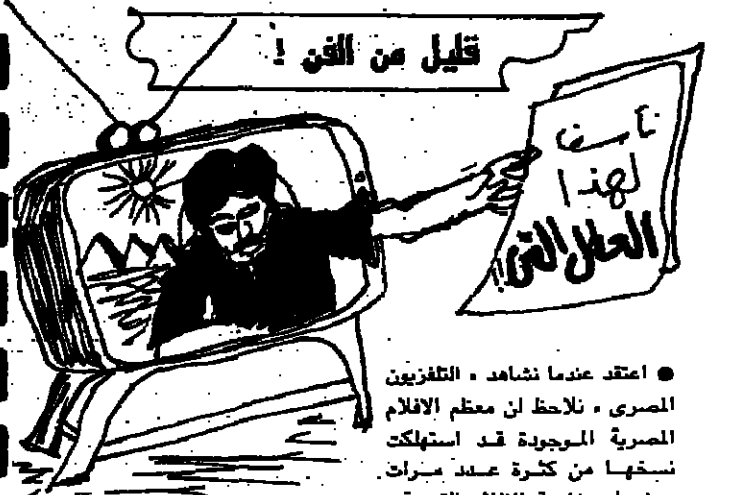 قليل من الفن !
نأسف
لهذا
العطل الفنى !
● اعتقد عندما نشاهد « التلفزيون
المصرى » نلاحظ ان معظم الافلام
المصرية الموجودة قد استهلكت
نسخها من كثرة عدد مرات